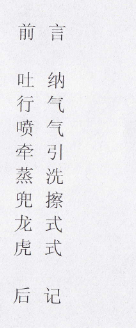 前 言
吐 纳
行 气
喷 气
牵 引
蒸 洗
兜 擦
龙 式
虎 式
后 记